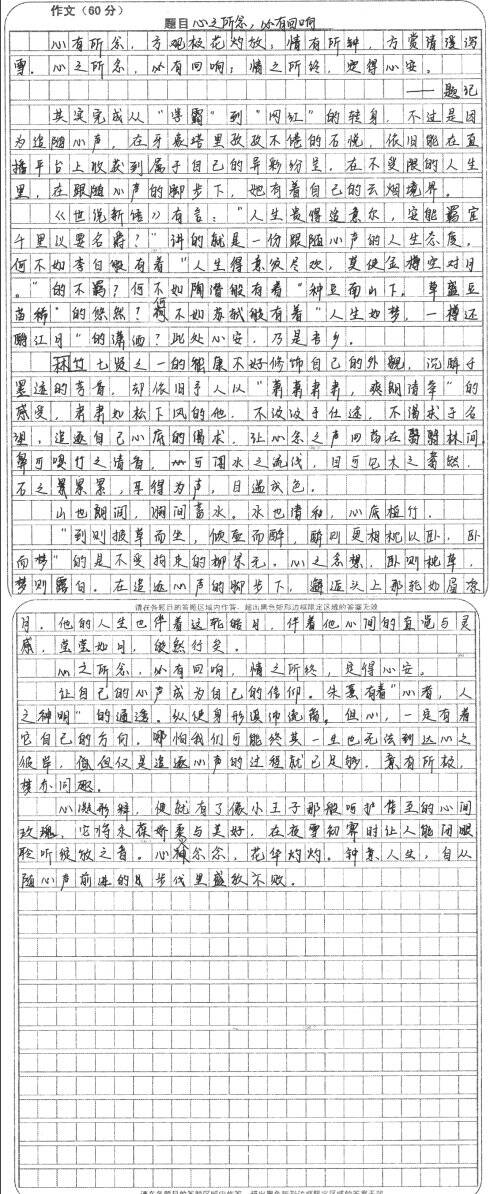 作文（60分）
题目 心之所念，必有回响
心有所念，方观枝花灼放；情有所钟，方赏清漫泻
雪。心之所念，必有回响；情之所终，定得心安。
——题记
其实完成从“学霸”到“网红”的转身，不过是因
为追随心声，在牙象塔里孜孜不倦的石悦，依旧能在直
播平台上收获到属于自己的异彩纷呈，在不受限的人生
里，在跟随心声的脚步下，她有着自己的云烟境界。
《世说新语》有言：“人生贵得适意尔，安能羁宦
千里以要名爵？”讲的就是一份跟随心声的人生态度，
何不如李白般有着“人生得意须尽欢，莫使金樽空对月
。”的不羁？何不如陶潜般有着“种豆南山下，草盛豆
苗稀”的悠然？何不如苏轼般有着“人生如梦，一樽还
酹江月”的潇洒？此处心安，乃是吾乡。
林竹七贤之一的嵇康不好修饰自己的外貌，沉醉于
墨迹的芳香，却依旧予人以“萧萧肃肃，爽朗清举”的
感受，肃肃如松下风的他，不汲汲于仕途，不渴求于名
望，追逐自己心底的渴求，让心念之声回荡在翳翳林间，
鼻可嗅竹之清香，可闻水之流伐，目可见木之蓊然，
石之累累，耳得为声，目遇成色。
山也朗润，胸间蓄水。水也清和，心底植竹。
“到则披草而坐，倾壶而醉，醉则更相枕以卧，卧
而梦”的是不受拘束的柳宗元。心之念想，卧则枕草，
梦则露白。在追逐心声的脚步下，邂逅头上那轮如眉弯
请在各题目的答题区域内作答，超出黑色矩形边框限定区域的答案无效
月，他的人生也伴着这轮皓月，伴着他心间的直觉与灵
感，莹莹如月，皎然行矣。
心之所念，必有回响，情之所终，定得心安。
让自己的心声成为自己的信仰。朱熹有着“心者，人
之神明”的通透。纵使身形颠沛流离。但心，一定有着
它自己的方向。哪怕我们可能终其一生也无法到达心之
彼岸，但但仅是追逐心声的过程就已足够，意有所极，
梦亦同趣。
心凝形释，便就有了像小王子那般呵护备至的心间
玫瑰，它将永葆娇柔与美好，在夜雪初霁时让人能闭眼
聆听绽放之音。心有念念，花华灼灼。钟意人生，自从
随心声前进的步伐里盛放不败。
请在各题目的答题区域内作答，超出黑色矩形边框限定区域的答案无效